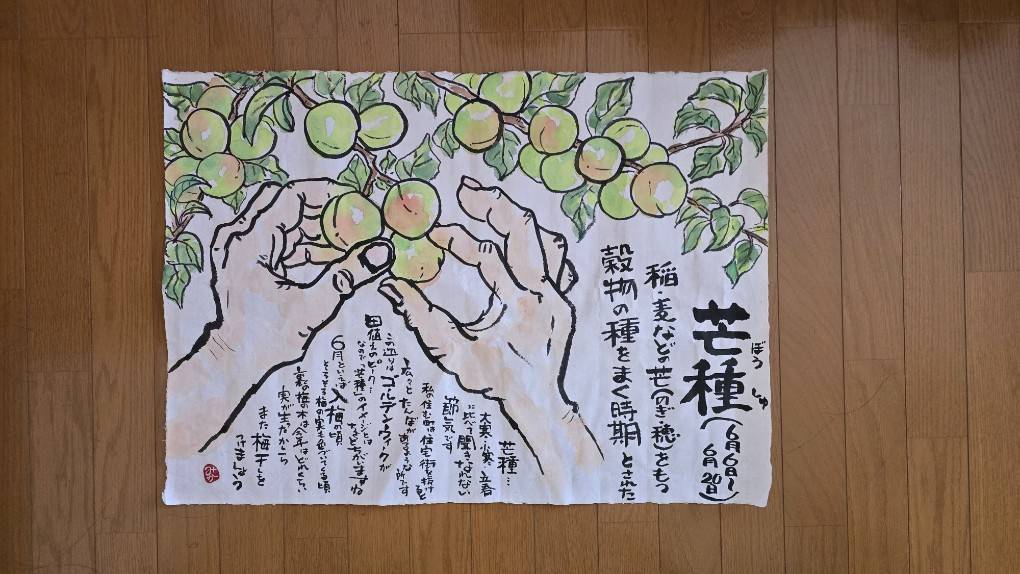 芒種
ぼう
しゅ
(6月6日〜
6月20日)
稲・麦などの芒(のぎ・穂)をもつ
穀物の種をまく時期とされた
芒種…
大寒・小寒・立春
に比べて聞きなれない
節気です
私の住む町は住宅街を抜けると
広々とたんぼがあるような所です
この辺りはゴールデンウィークが
田植えのピーク…
なので“芒種”のイメージとは
ちょっとちがいますね
6月といえば入梅の頃
そろそろ梅の実も色づいてくる頃
裏の梅の木は今年はどれくらい
実が生るかしら
また梅干しを
つけましょう